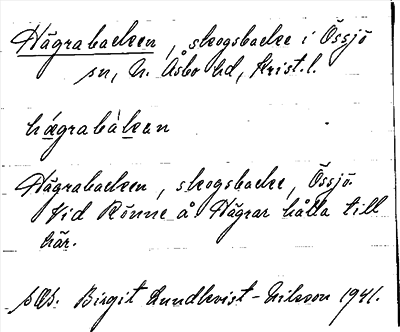 Hägrabacken, skogsbacke i Össjö
sn, N. Åsbo hd, Krist. l.
hägrabàkan
Hägrabacken, skogsbacke, Össjö.
Vid Rönne å. Hägrar hålla till
här.
Birgit Lundkvist-Nilsson 1941.